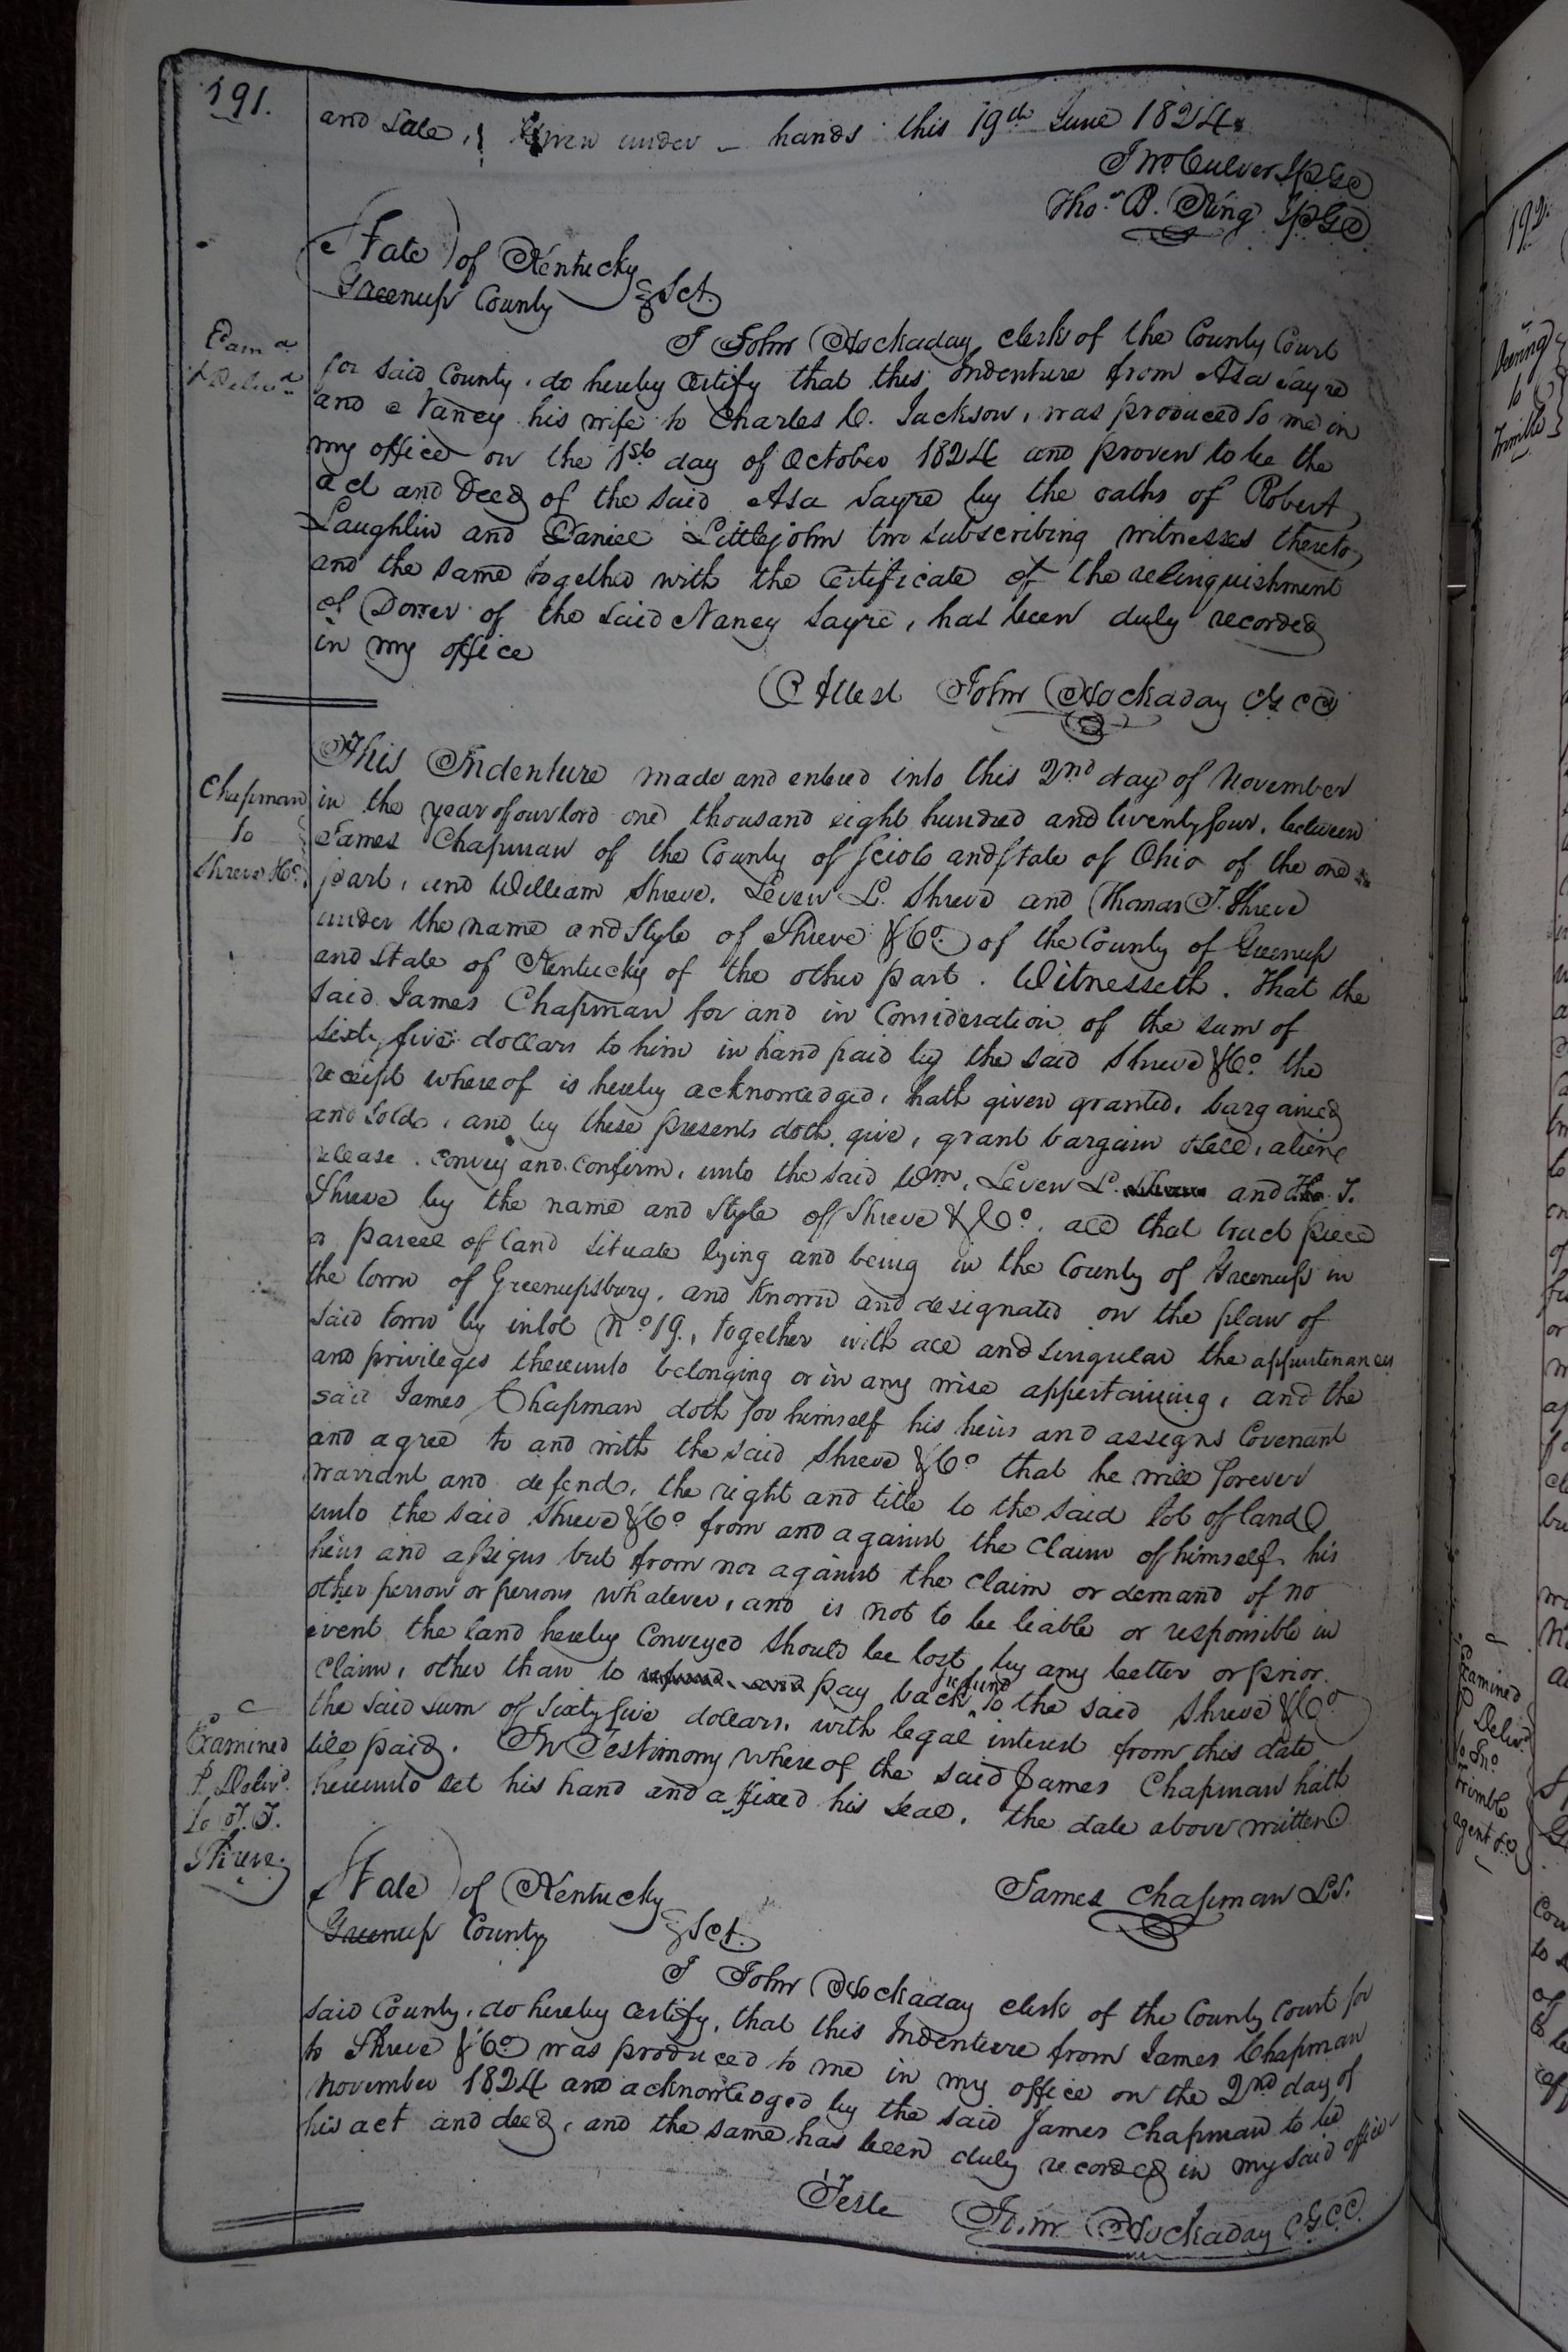 191.
and Sale, Given under - hands this 19th June 1824.
Jno Culver JPGC
Tho.s B. King JPGC
State of Kentucky
Greenup County Sct.
Exam d
& Deliv d
I John Hockaday clerk of the County Court
for said County, do hereby Certify that this Indenture from Asa Sayre
and Nancy his wife to Charles C. Jackson, was produced to me in
my office on the 1st day of October 1824 and proven to be the
act and Deed of the said Asa Sayre by the oaths of Robert
Laughlin and Daniel Littlejohn two subscribing witnesses thereto,
and the same together with the Certificate of the relinquishment
of Dower of the said Nancy Sayre, has been duly recorded
in my office
Attest John Hockaday CGCC
Chapman
to
Shreve &Co.
This Indenture made and entered into this 2nd day of November
in the year of our lord one thousand eight hundred and twenty four, between
James Chapman of the County of Scioto and State of Ohio of the one
part, and William Shreve, Leven L. Shreve and Thomas T. Shreve
under the name and Style of Shreve &Co. of the County of Greenup
and State of Kentucky of the other part. Witnesseth. That the
said James Chapman for and in Consideration of the sum of
sixty five dollars to him in hand paid by the said Shreve &Co. the
receipt whereof is hereby acknowledged, hath given granted, bargained
and sold, and by these presents doth give, grant bargain &sell, aliene
release, convey and confirm, unto the said Wm, Leven L. and Tho. T.
Shreve by the name and Style of Shreve & Co. all that tract piece
or parcel of land situate lying and being in the County of Greenup in
the town of Greenupsburg, and known and designated on the plan of
said town by inlot No 19., together with all and singular the appurtenances
and privileges thereunto belonging or in any wise appertaining, and the
said James Chapman doth for himself his heirs and assigns Covenant
and agree to and with the said Shreve &Co that he will forever
warrant and defend, the right and title to the said lot of land
unto the said Shreve &Co from and against the Claim of himself, his
heirs and assigns but from nor against the claim or demand of no
other person or persons whatever, and is not to be liable or responsible in
event the land hereby Conveyed should be lost by any better or prior
Claim, other than to refund and pay back refund to the said Shreve &Co
the said sum of sixty five dollars, with legal interest from this date
till paid. In Testimony whereof the said James Chapman hath
hereunto set his hand and affixed his seal, the date above written
Examined
& Deliv d.
to T. T.
Shreve.
James Chapman LS.
State of Kentucky
Greenup County Sct.
I John Hockaday clerk of the County Court for
said County, do hereby Certify, that this Indenture from James Chapman
to Shreve &Co was produced to me in my office on the 2nd day of
November 1824 and acknowledged by the said James Chapman to be
his act and deed, and the same has been duly recorded in my said office
Teste John Hockaday CGCC.
192.
to
Trimble
Examined
& Deliv d
to Jno
Trimble
agent &c